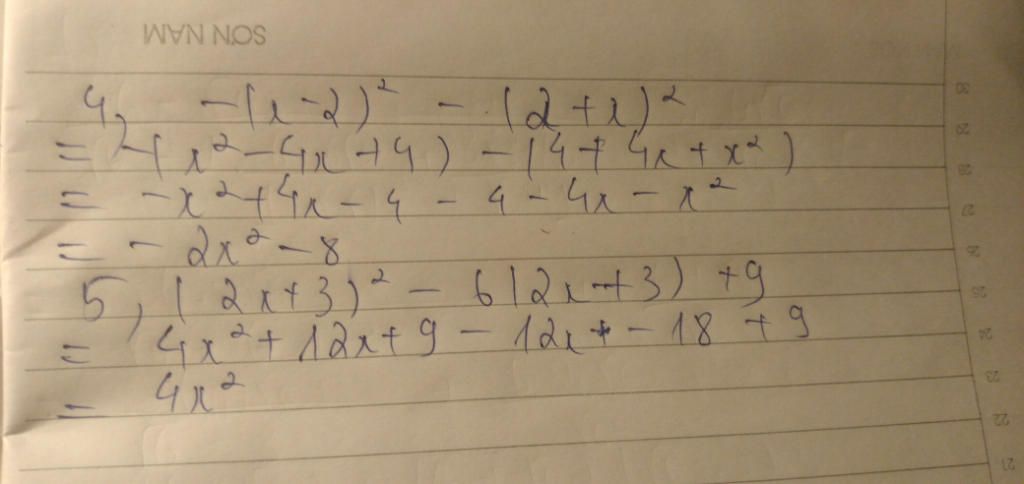 SƠN NAM
4, -(x-2)² - (2+x)²
= -(x²-4x+4) - (4+4x+x²)
= -x²+4x-4-4-4x-x²
= -2x²-8
5, (2x+3)² - 6(2x+3) +9
= 4x²+12x+9-12x+-18+9
= 4x²
30
29
28
27
26
25
24
23
22
21